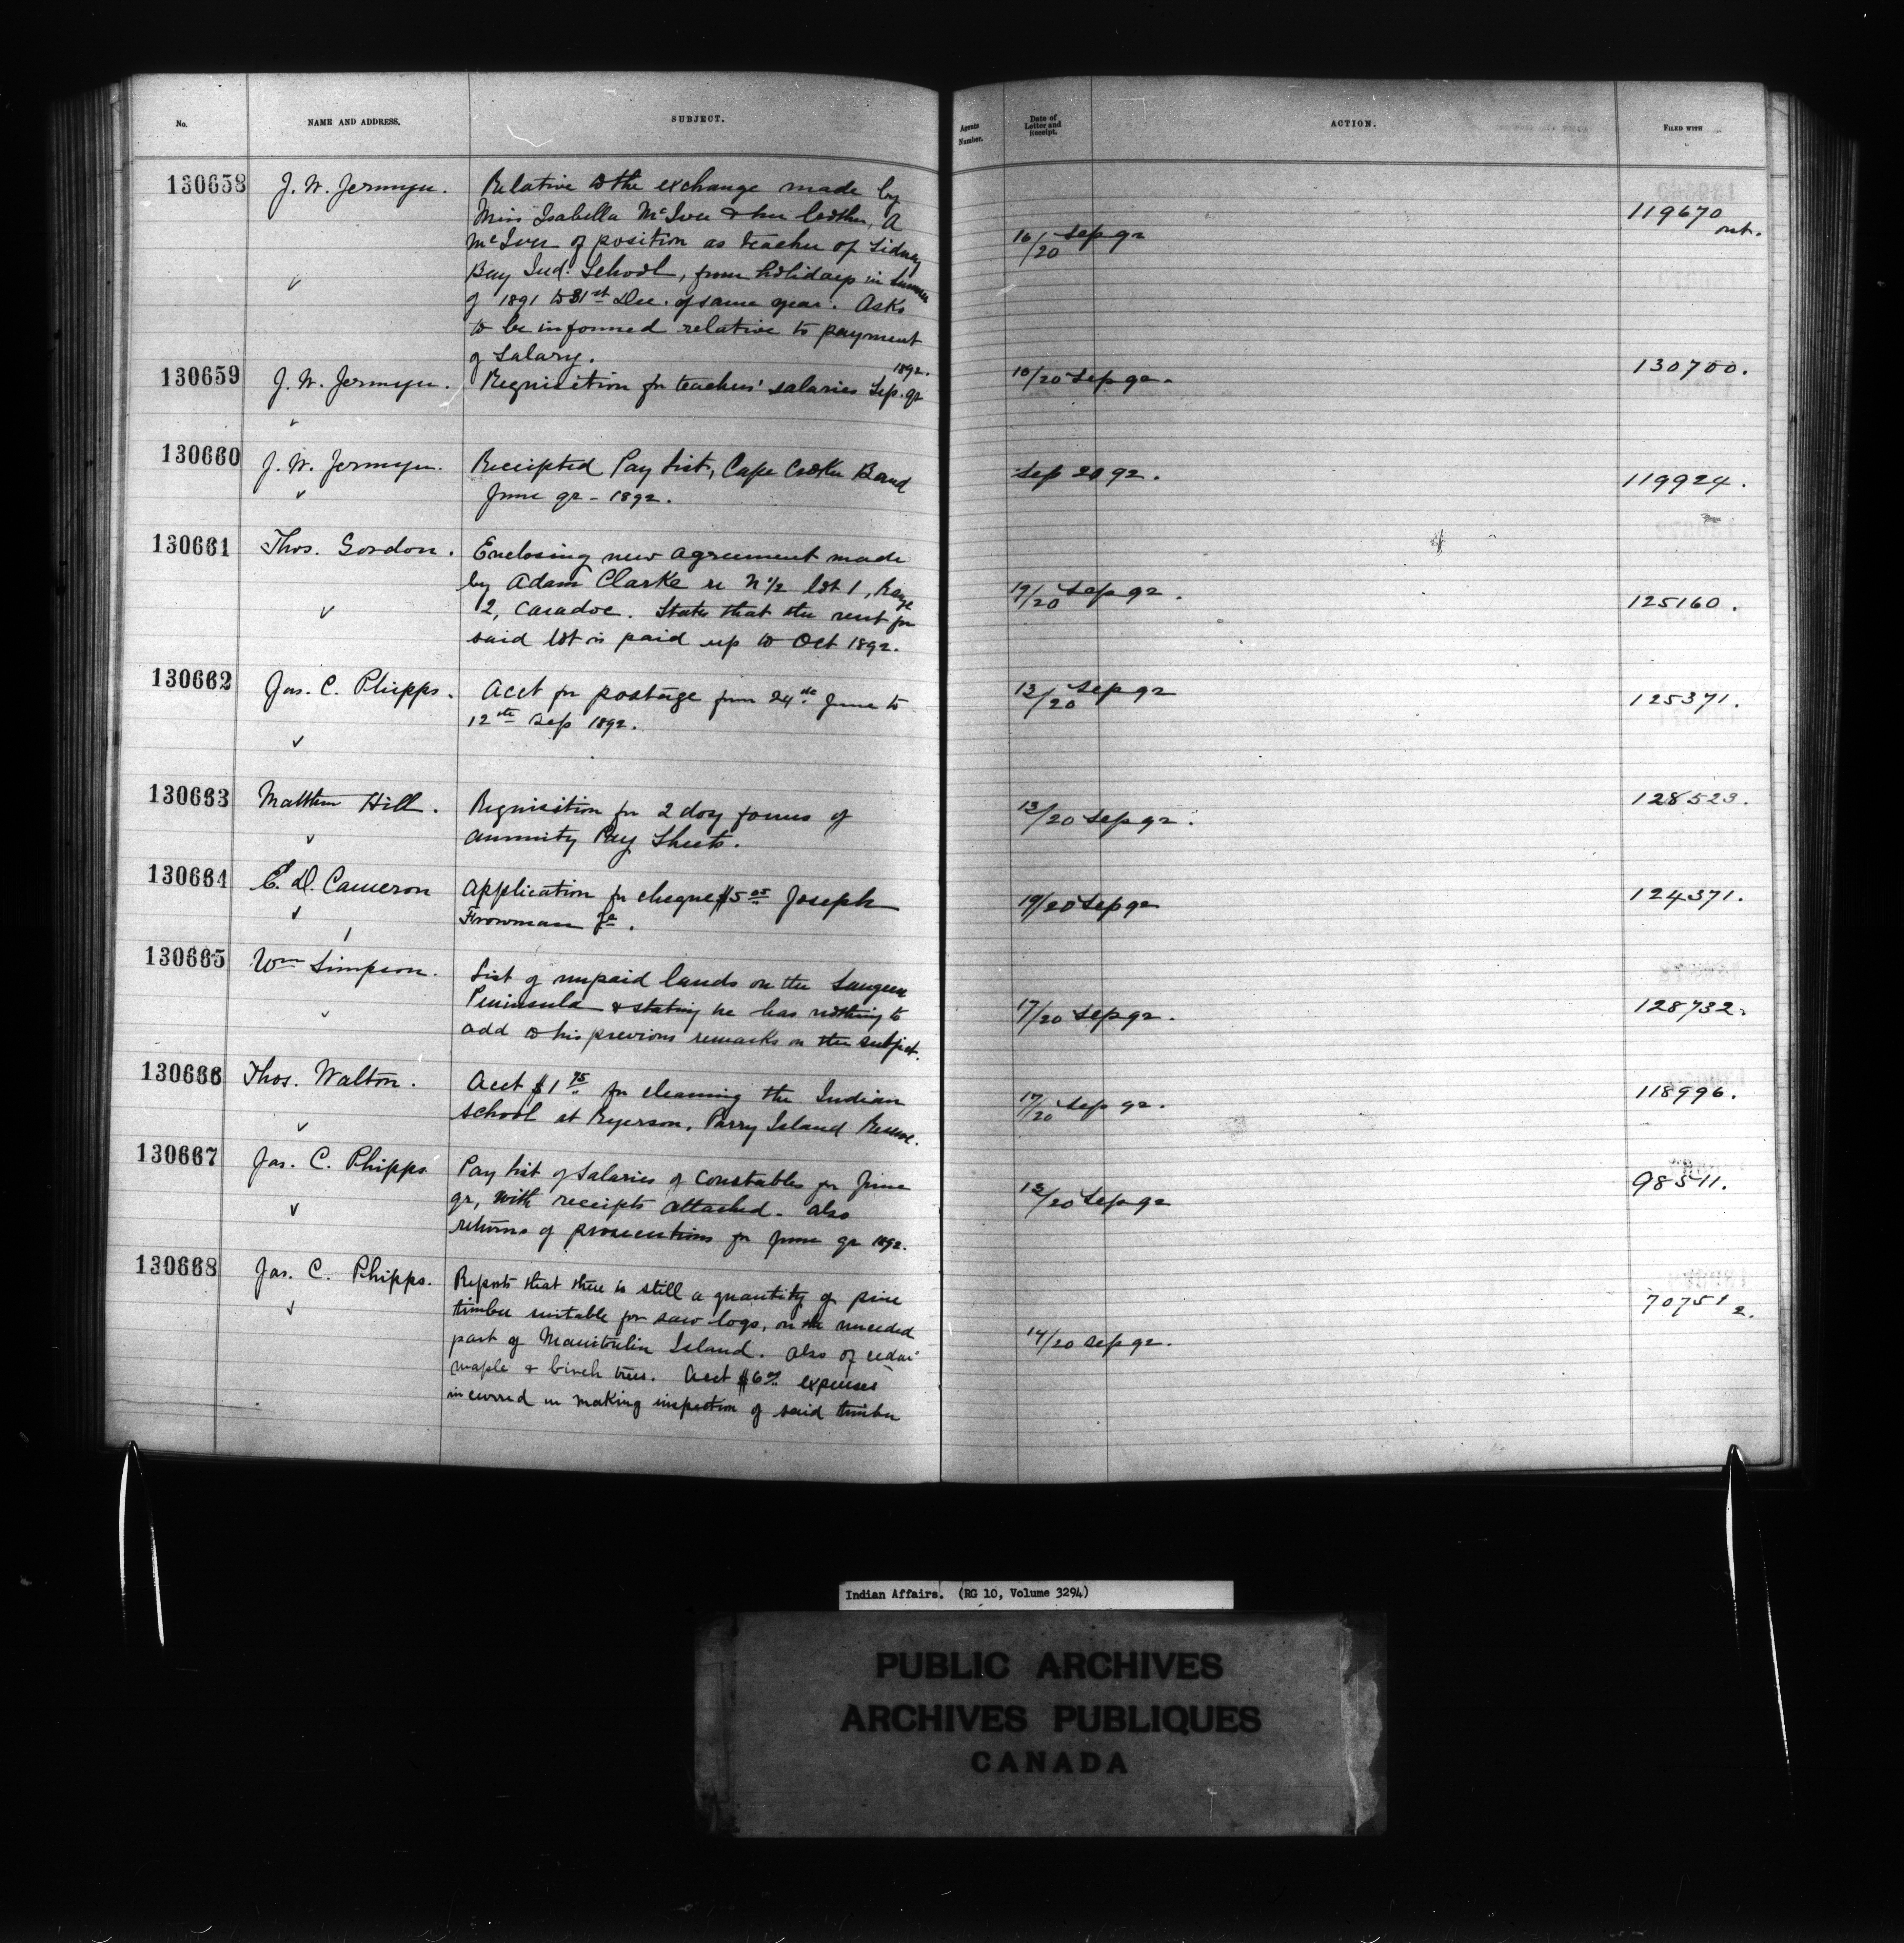 No. NAME AND ADDRESS. SUBJECT. Agents Number. Date of Letter and Receipt. ACTION. FILED WITH
130658 J. W. Jermyn. Relative to the exchange made by
Miss Isabella McIver & her brother, A
McIver of position as teacher of Sidney
Bay Ind. School, from holidays in Summer
of 1891 to 31st Dec. of same year. Asks
to be informed relative to payment
of Salary.
16/20 Sep 92
119670
130659 J. W. Jermyn. Requisition for teachers' salaries Sep. qr 1892.
16/20 Sep 92.
130700.
130660 J. W. Jermyn. Receipted Pay List, Cape Croker Band
June qr - 1892.
Sep 20 92.
119924.
130661 Thos. Gordon. Enclosing new agreement made
by Adam Clarke re N 1/2 lot 1, Range
2, Caradoc. States that the rent for
said lot is paid up to Oct 1892.
19/20 Sep 92.
125160.
130662 Jas. C. Phipps. Acct for postage from 24th June to
12th Sep 1892.
13/20 Sep 92
125371.
130663 Matthew Hill. Requisition for 2 doz forms of
annuity Pay Sheets.
13/20 Sep 92.
128523.
130664 E. D. Cameron Application for cheque $5 Joseph
Frowman Jr.
19/20 Sep 92
124371.
130665 Wm Simpson. List of unpaid lands on the Saugeen
Peninsula & stating he has nothing to
add to his previous remarks on the subject.
17/20 Sep 92.
128732.
130666 Thos. Walton. Acct $1 75 for cleaning the Indian
School at Ryerson, Parry Island Reserve.
17/20 Sep 92.
118996.
130667 Jas. C. Phipps Pay list of Salaries of Constables for June
qr, with receipts attached. Also
returns of prosecutions for June qr 1892.
13/20 Sep 92
98511.
130668 Jas. C. Phipps. Reports that there is still a quantity of pine
timber suitable for saw logs, on the unceded
part of Manitoulin Island. Also of cedar
maple & birch trees. Acct $6 expenses
incurred in making inspection of said timber
14/20 Sep 92.
70751 2.
Indian Affairs. (RG 10, Volume 3294)
PUBLIC ARCHIVES
ARCHIVES PUBLIQUES
CANADA